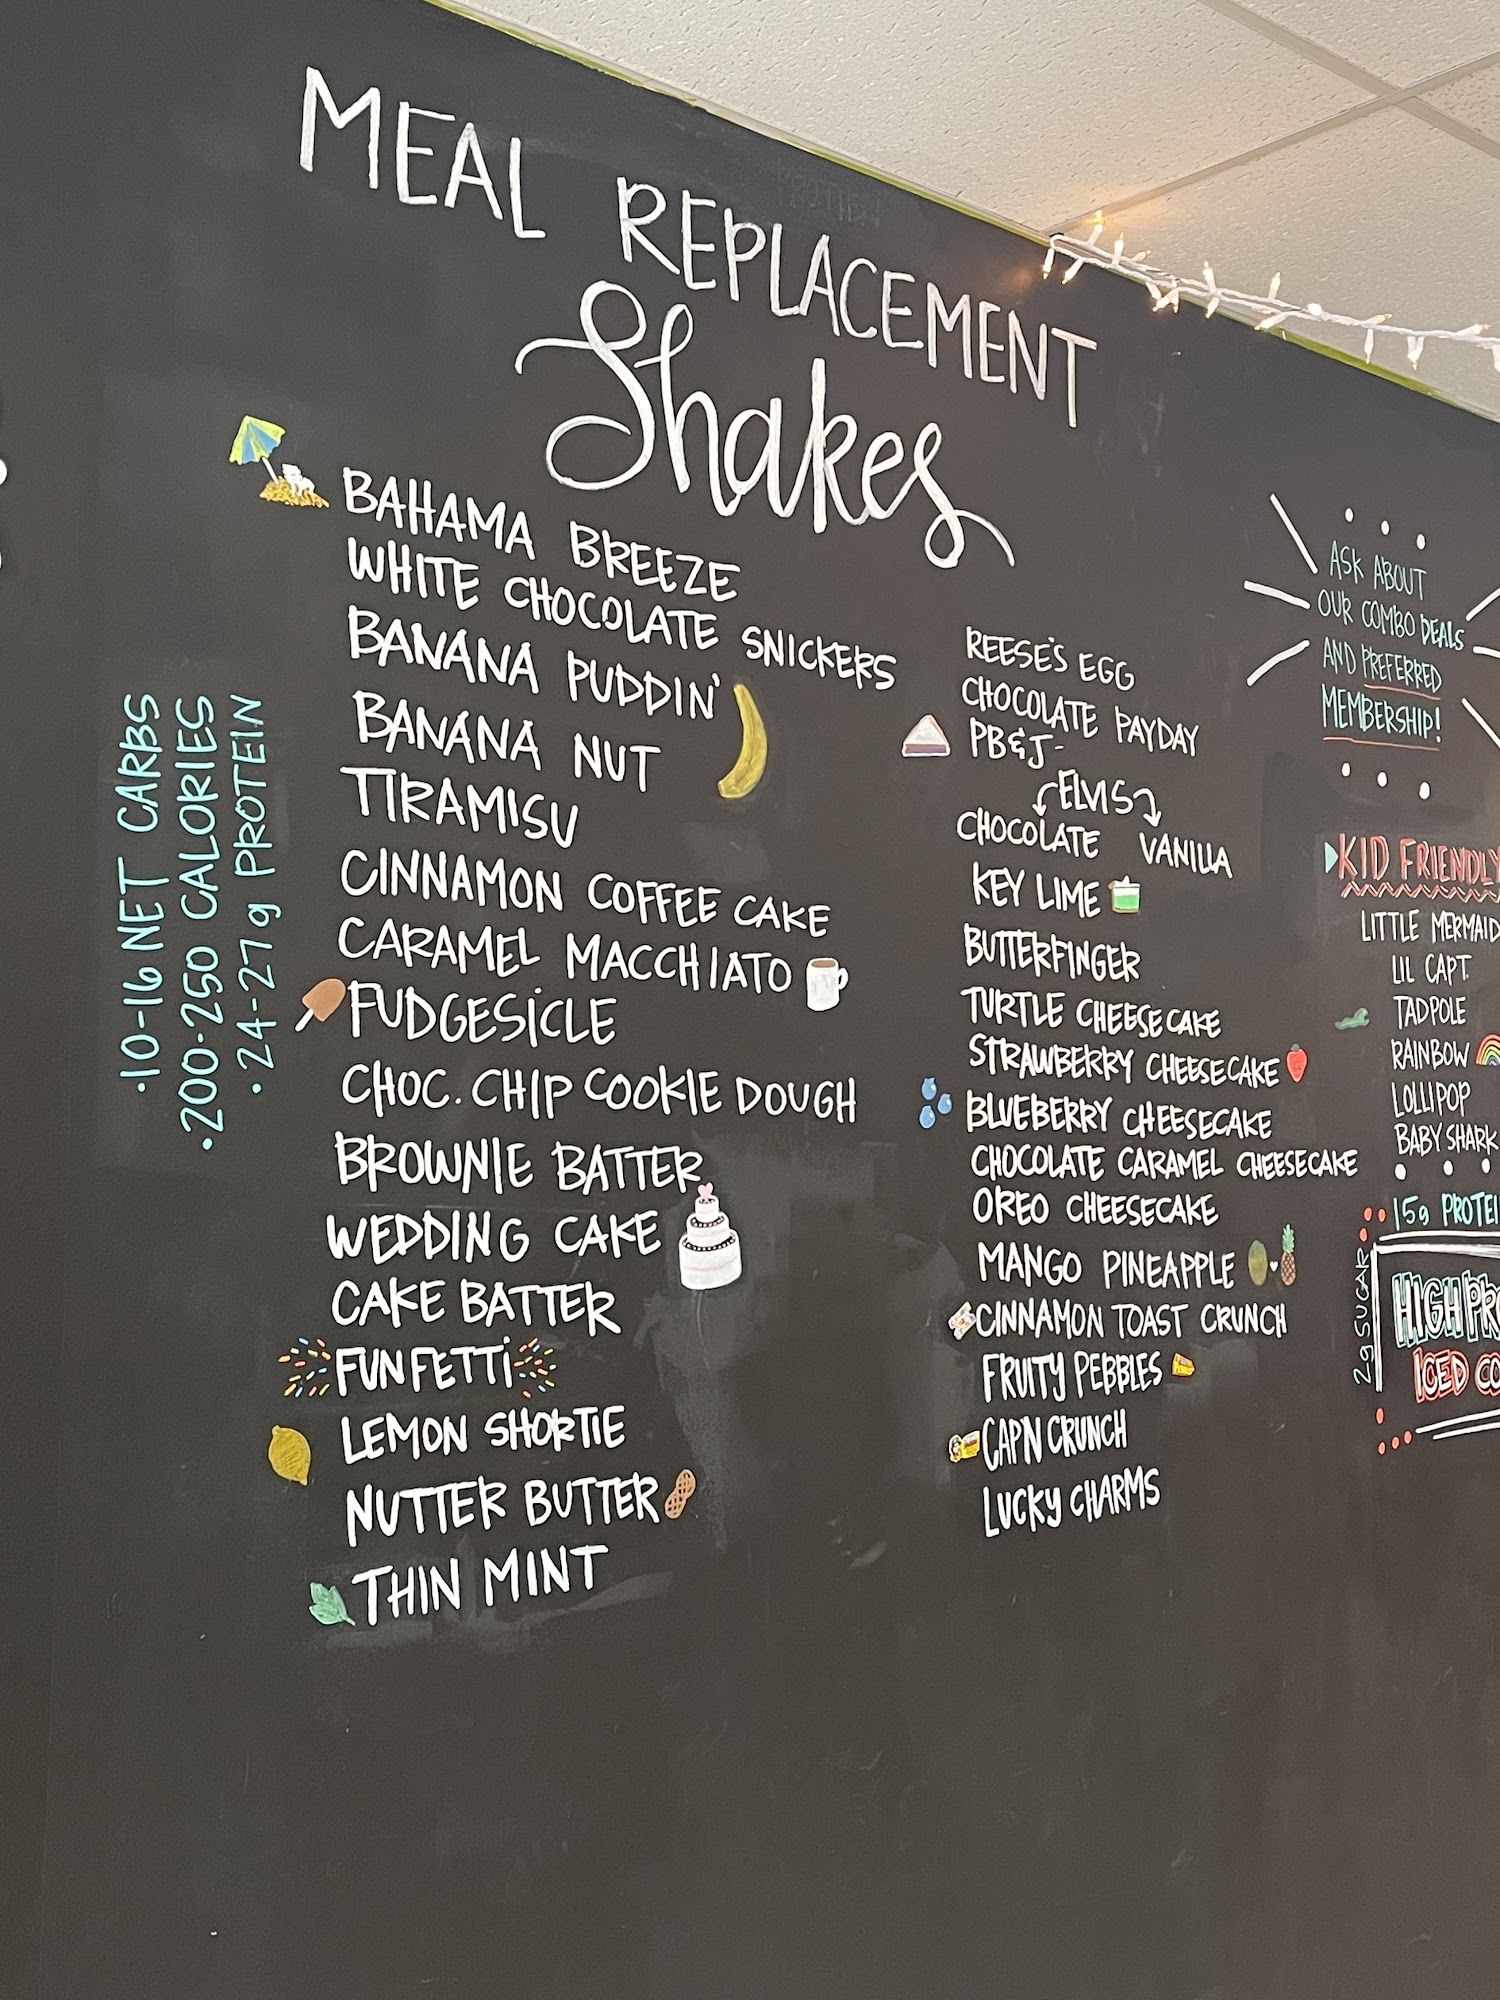 MEAL REPLACEMENT
Shakes
·10-16 NET CARBS
·200-250 CALORIES
·24-27g PROTEIN
BAHAMA BREEZE
WHITE CHOCOLATE SNICKERS
BANANA PUDDIN'
BANANA NUT
TIRAMISU
CINNAMON COFFEE CAKE
CARAMEL MACCHIATO
FUDGESiCLE
CHOC. CHIP COOKIE DOUGH
BROWNIE BATTER
WEDDING CAKE
CAKE BATTER
FUNFETTi
LEMON SHORTIE
NUTTER BUTTER
THIN MINT
REESE'S EGG
CHOCOLATE PAYDAY
PB&J-
ELVIS
CHOCOLATE VANILLA
KEY LIME
BUTTERFINGER
TURTLE CHEESECAKE
STRAWBERRY CHEESECAKE
BLUEBERRY CHEESECAKE
CHOCOLATE CARAMEL CHEESECAKE
OREO CHEESECAKE
MANGO PINEAPPLE
CINNAMON TOAST CRUNCH
FRUITY PEBBLES
CAPN CRUNCH
LUCKY CHARMS
ASK ABOUT
OUR COMBO DEALS
AND PREFERRED
MEMBERSHIP!
KID FRIENDLY
LITTLE MERMAID
LIL CAPT.
TADPOLE
RAINBOW
LOLLIPOP
BABY SHARK
15g PROTEI
2g SUGAR
HIGH PRO
ICED CO